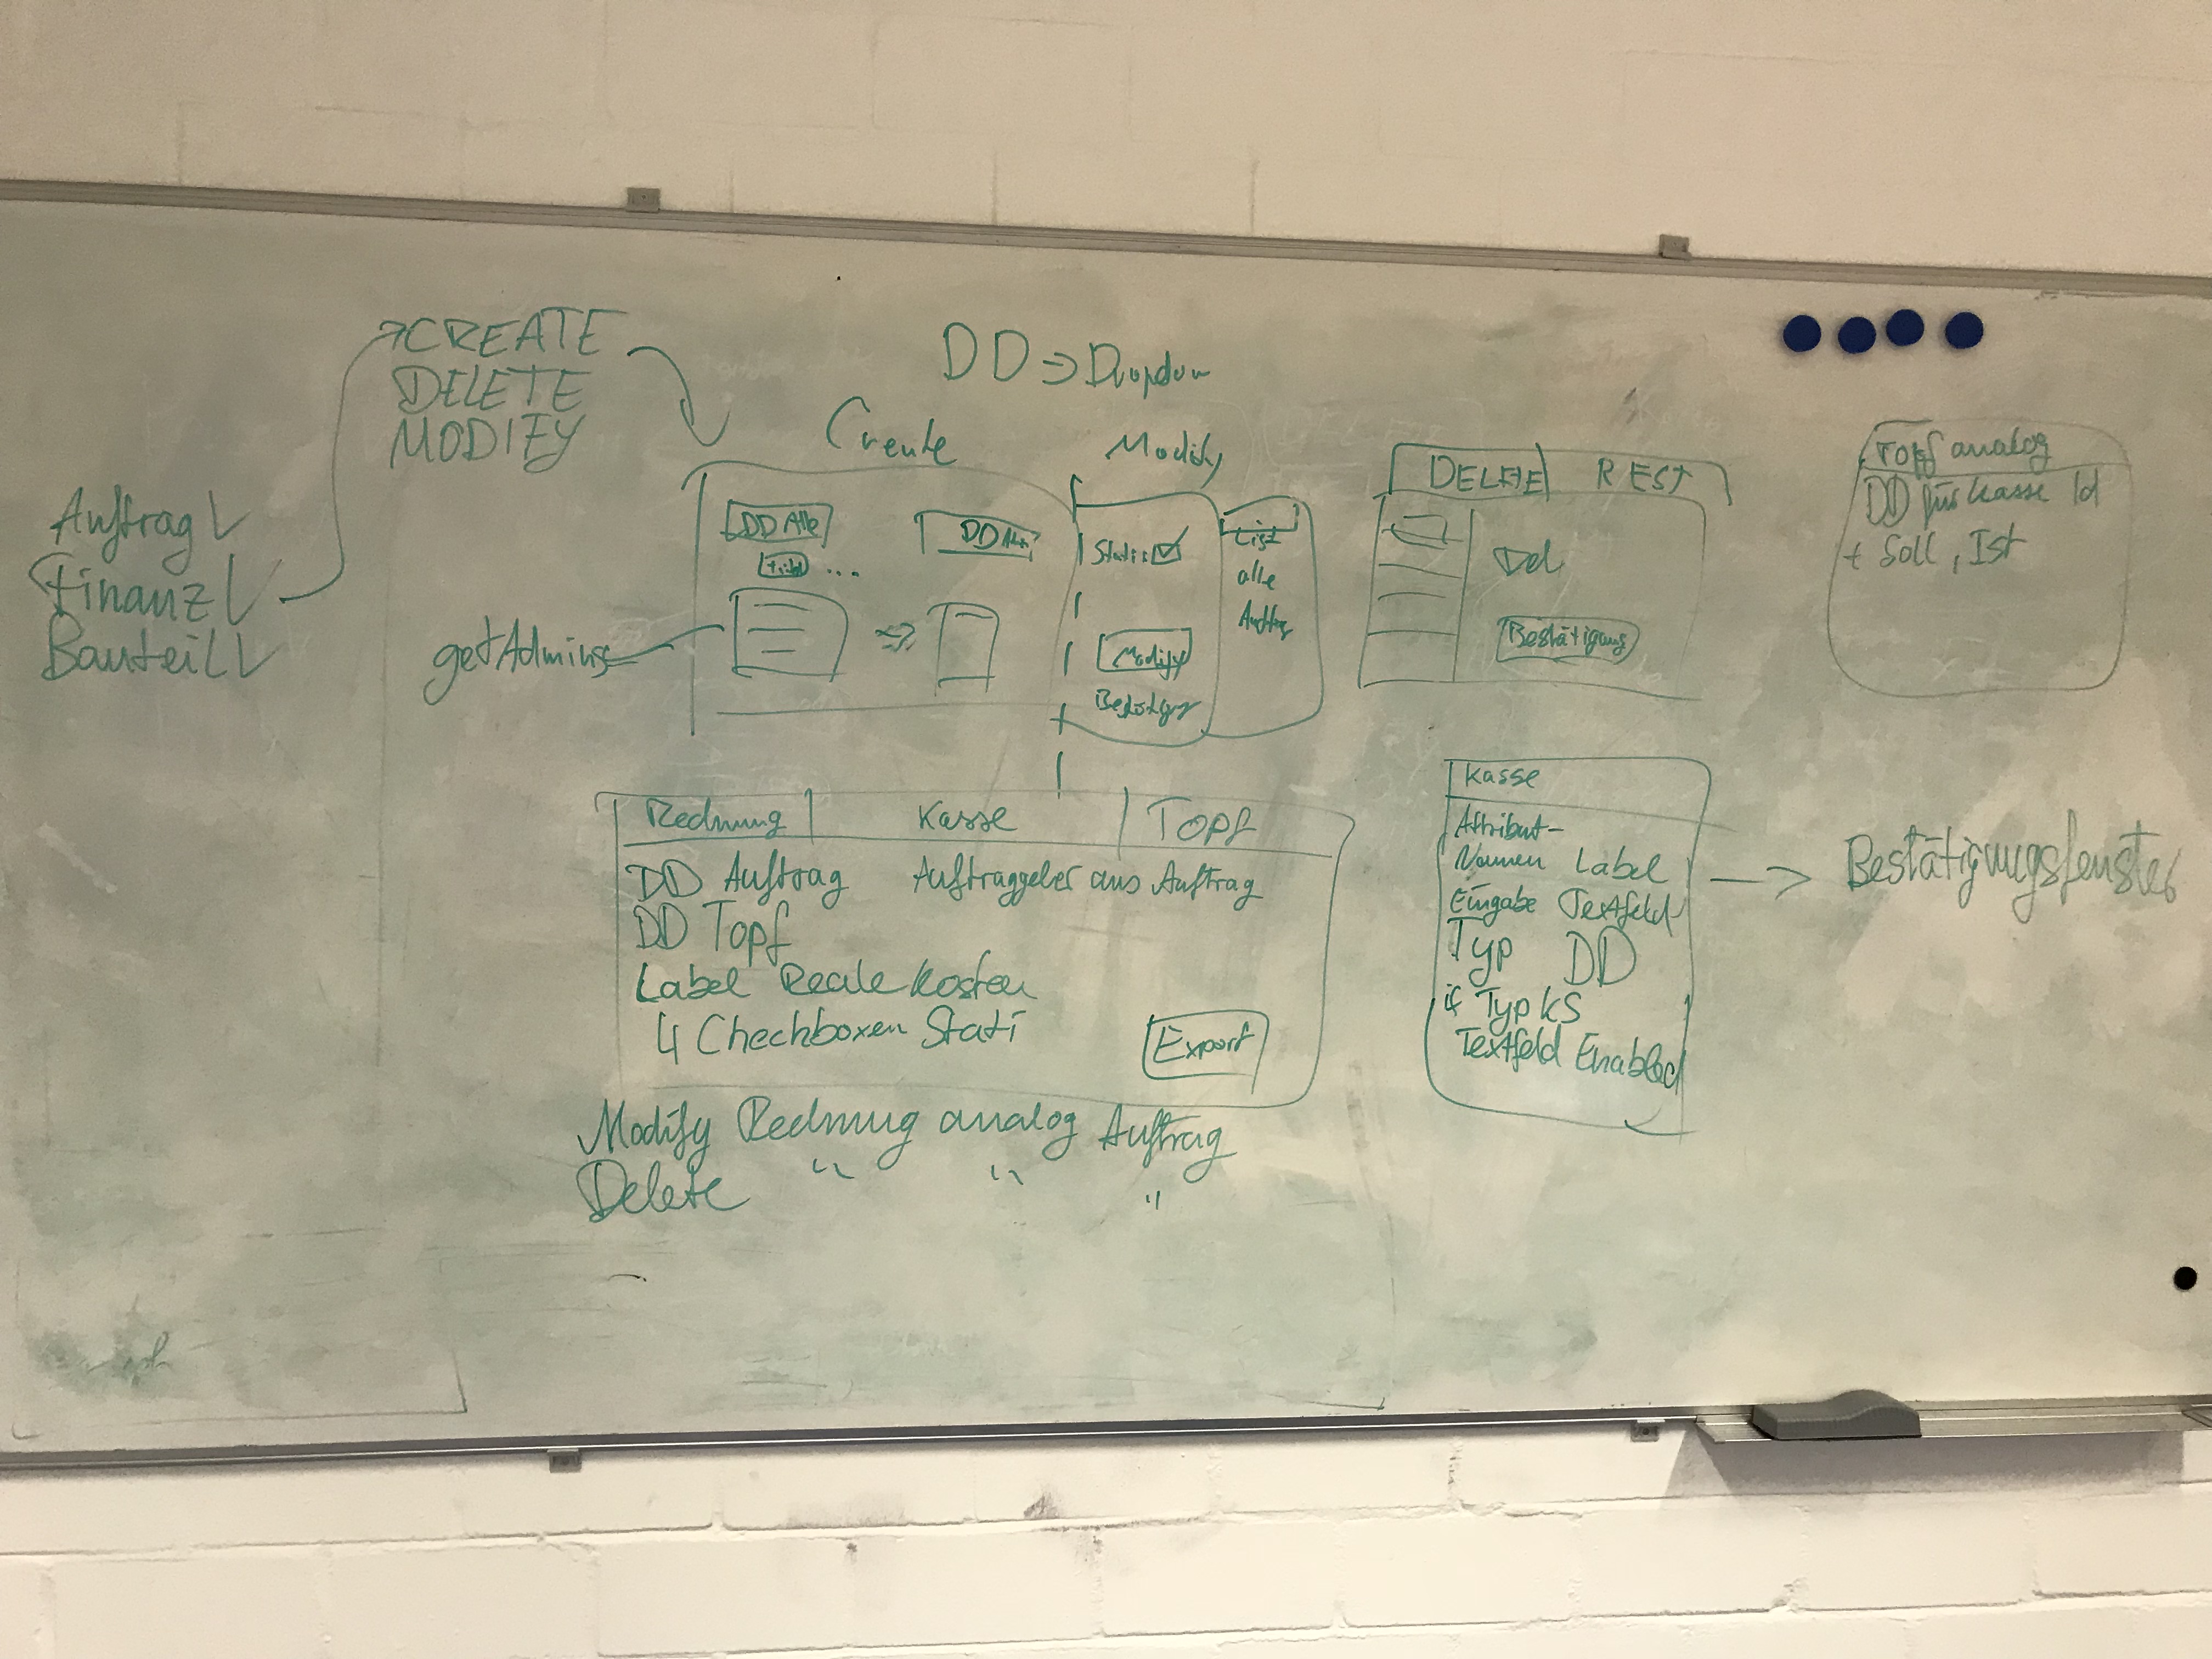 CREATE
DELETE
MODIFY
DD => Dropdown
Auftrag
Finanz
Bauteil
getAdmins
Create
DD Alle
DD
...
Modify
Stati:
Modify
List
alle
DELETE REST
Del
Bestätigung
Topf analog
DD für Kasse Id
+ Soll, Ist
Rechnung Kasse Topf
DD Auftrag Auftraggeber aus Auftrag
DD Topf
Label Reale Kosten
4 Checkboxen Stati
Export
Modify Rechnung analog Auftrag
Delete " " "
Kasse
Attribut-
Namen Label
Eingabe Textfeld
Typ DD
if Typ KS
Textfeld Enabled
Bestätigungsfenster